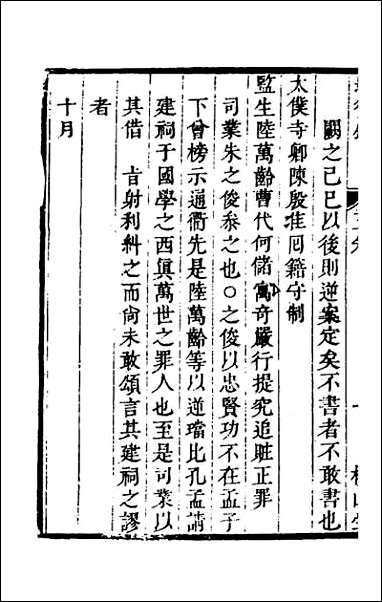 闕之己巳以後則逆案定矣不書者不敢書也
太僕寺卿陳殷准囘籍守制
監生陸萬齡曹代何儲寓奇嚴行提究追贓正罪
司業朱之俊叅之也○之俊以忠賢功不在孟子
下曾榜示通衢先是陸萬齡等以逆璫比孔孟請
建祠于國學之西眞萬世之罪人也至是司業以
其借　旨射利糾之而尙未敢頌言其建祠之謬
者
十月